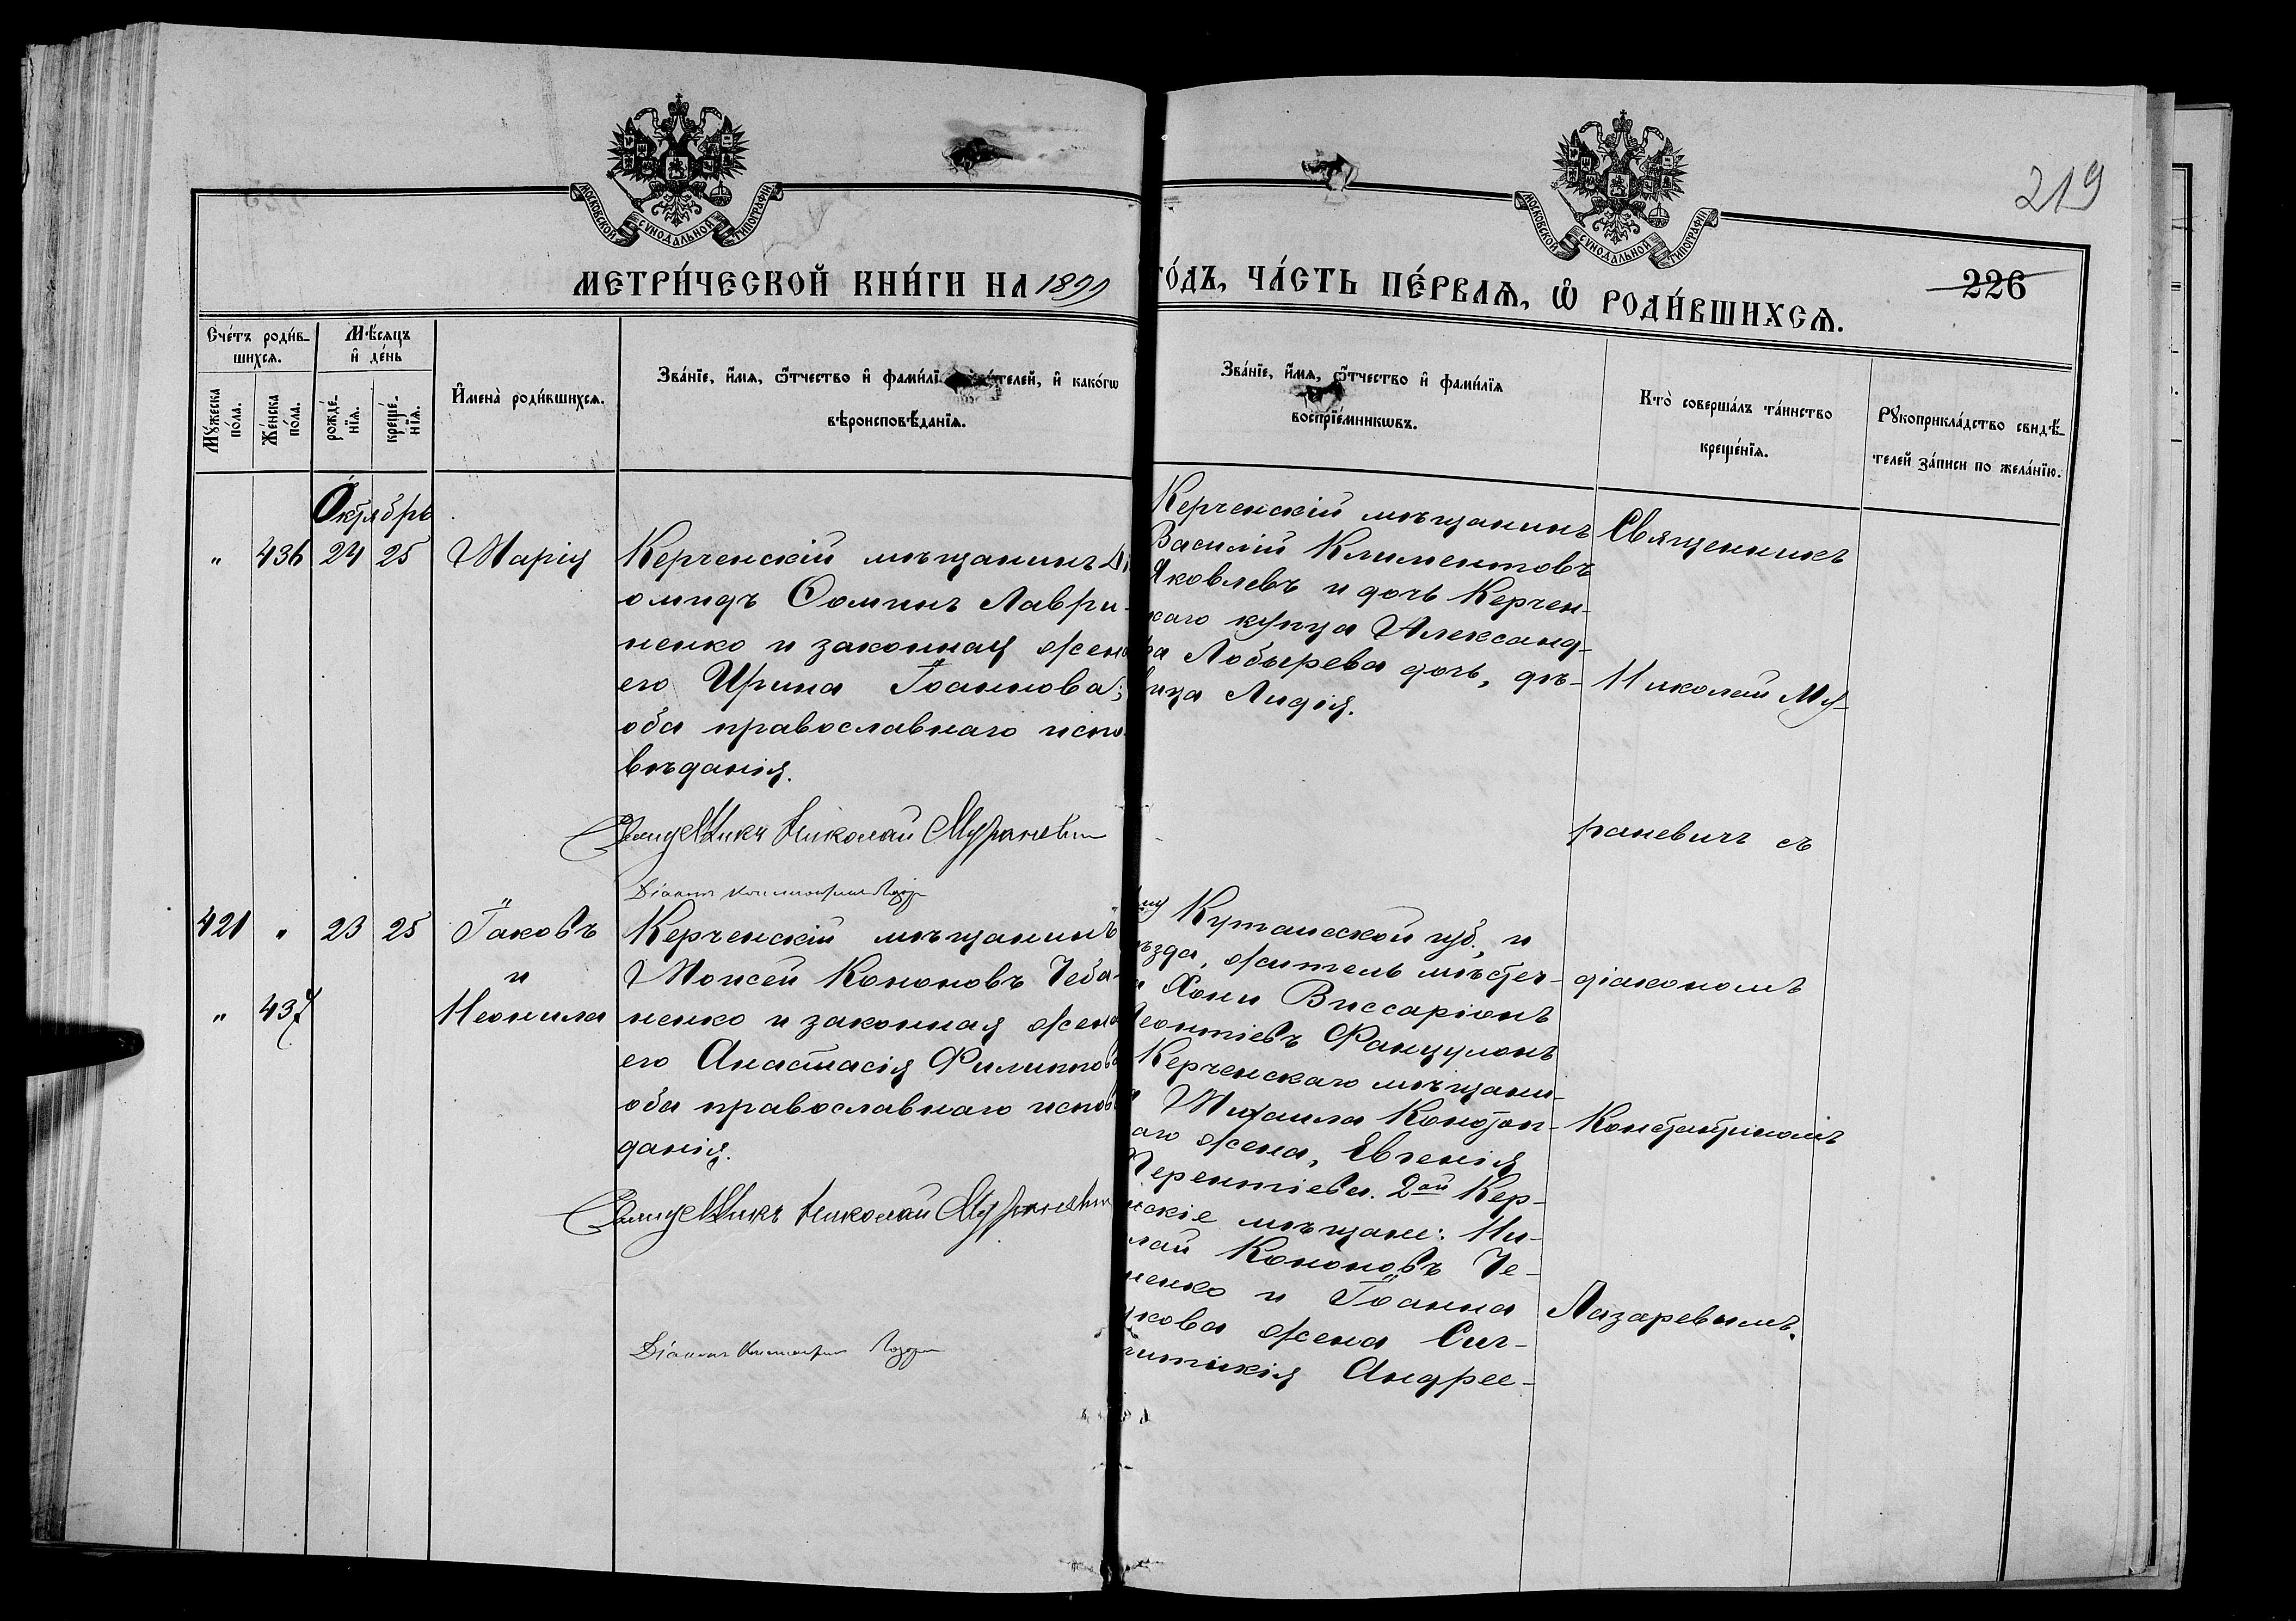 МОСКОВСКОЙ СѴНОДАЛЬНОЙ ТИПОГРАФІИ
МОСКОВСКОЙ СѴНОДАЛЬНОЙ ТИПОГРАФІИ
219
МЕТРИ́ЧЕСКОЙ КНИ́ГИ НА 1899
ГО́ДЪ, ЧА́СТЬ ПЕ́РВАѦ, Ѡ҆ РОДИ́ВШИХСѦ.
226
Сче́тъ роди́в-
шихсѧ.
Мѣ́сѧцъ
и҆ де́нь
Мꙋ́жеска
по́ла.
Же́нска
по́ла.
рожде́-
нїѧ.
креще́-
нїѧ.
И҆мена̀ роди́вшихсѧ.
Зва́нїе, и҆́мѧ, ѻ҆́тчество и҆ фами́лї телей, и҆ како́гѡ
вѣроисповѣ́данїѧ.
Зва́нїе, и҆́мѧ, ѻ҆́тчество и҆ фами́лїѧ
воспрїе́мникѡвъ.
Кто̀ соверша́лъ та́инство
креще́нїѧ.
Рꙋкоприкла́дство свидѣ́-
телей за́писи по жела́нїю.
Октябрь
" 436 24 25 Марія
Керченскій мѣщанинъ Ді
омидъ Ѳоминъ Лаври-
ненко и законная жена
его Ирина Іоаннова;
оба православнаго испо-
вѣданія.
Священникъ Николай Мураневич
Діаконъ Константин Лазар
Керченскій мѣщанинъ
Василій Климентовъ
Яковлевъ и дочь Керчен-
скаго купца Александ-
ра Лобырева дочь, дѣ-
вица Лидія.
Священникъ
Николай Му-
раневичъ съ
діакономъ
Константиномъ
Лазаревымъ.
421 " 23 25 Іаковъ
и
" 437 Неонила
Керченскій мѣщанинъ
Моисей Кононовъ Чеба-
ненко и законная жена
его Анастасія Филиппова
оба православнаго исповѣ
данія.
Священникъ Николай Мураневич
Діаконъ Константин Лазар
Кутаисской губ. и
ѣзда, житель мѣстеч-
Хони Виссаріонъ
Леонтіевъ Фанцулонъ
Керченскаго мѣщани-
Михаила Конотоп-
аго жена, Евгенія
Терентіева. 2ой Кер-
нскіе мѣщане: Ни-
лай Кононовъ Че-
ненко и Іоанна
кова жена Син-
литикія Андрее-